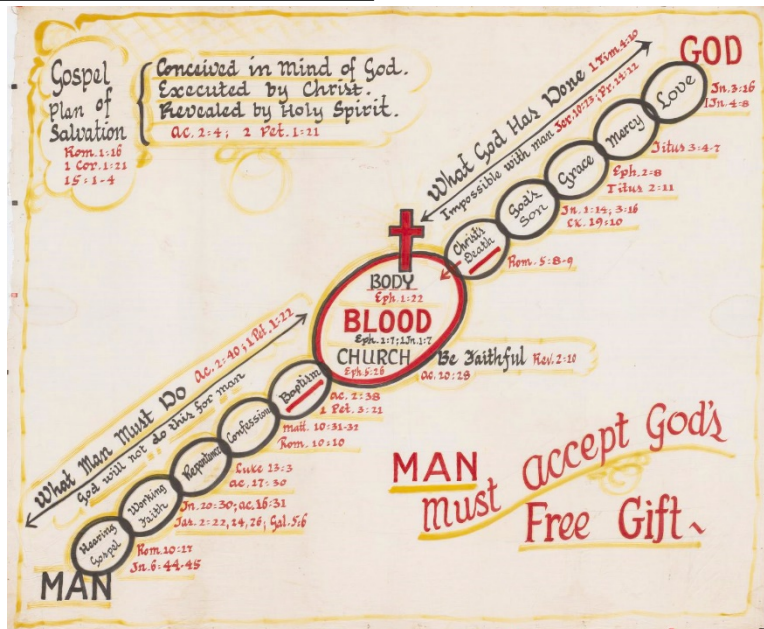 Gospel
Plan of
Salvation
Rom. 1:16
1 Cor. 1:21
15:1-4
Conceived in mind of God.
Executed by Christ.
Revealed by Holy Spirit.
Ac. 2:4; 2 Pet. 1:21
GOD
What God Has Done 1 Tim. 4:10
Impossible with man Jer. 10:23; Pr. 14:12
Love
Jn. 3:16
1 Jn. 4:8
Mercy
Titus 3:4-7
Grace
Eph. 2:8
Titus 2:11
God's
Son
Jn. 1:14; 3:16
Lk. 19:10
Christ's
Death
Rom. 5:8-9
BODY
Eph. 1:22
BLOOD
Eph. 1:7; 1 Jn. 1:7
CHURCH
Eph. 5:26
Be Faithful Rev. 2:10
Ac. 20:28
What Man Must Do Ac. 2:40; 1 Pet. 1:22
God will not do this for man
Baptism
Ac. 2:38
1 Pet. 3:21
Confession
Matt. 10:31-32
Rom. 10:10
Repentance
Luke 13:3
Ac. 17:30
Working
Faith
Jn. 20:30; Ac. 16:31
Jas. 2:22, 24, 26; Gal. 5:6
Hearing
Gospel
Rom. 10:17
Jn. 6:44-45
MAN
MAN
must accept God's
Free Gift